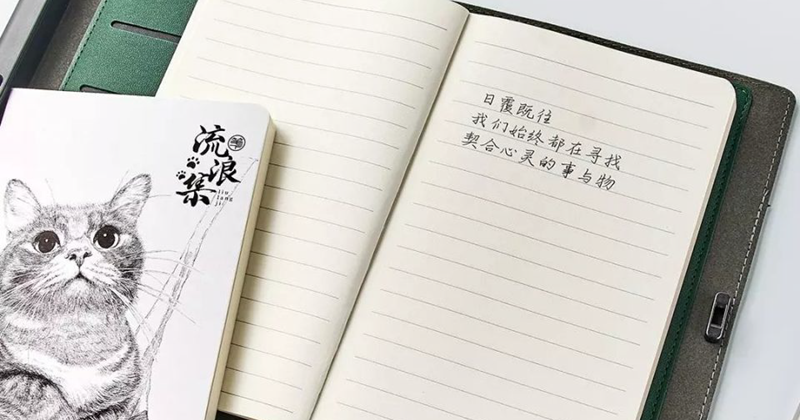 流浪集
liu
lang
ji
日覆既往
我们始终都在寻找
契合心灵的事与物